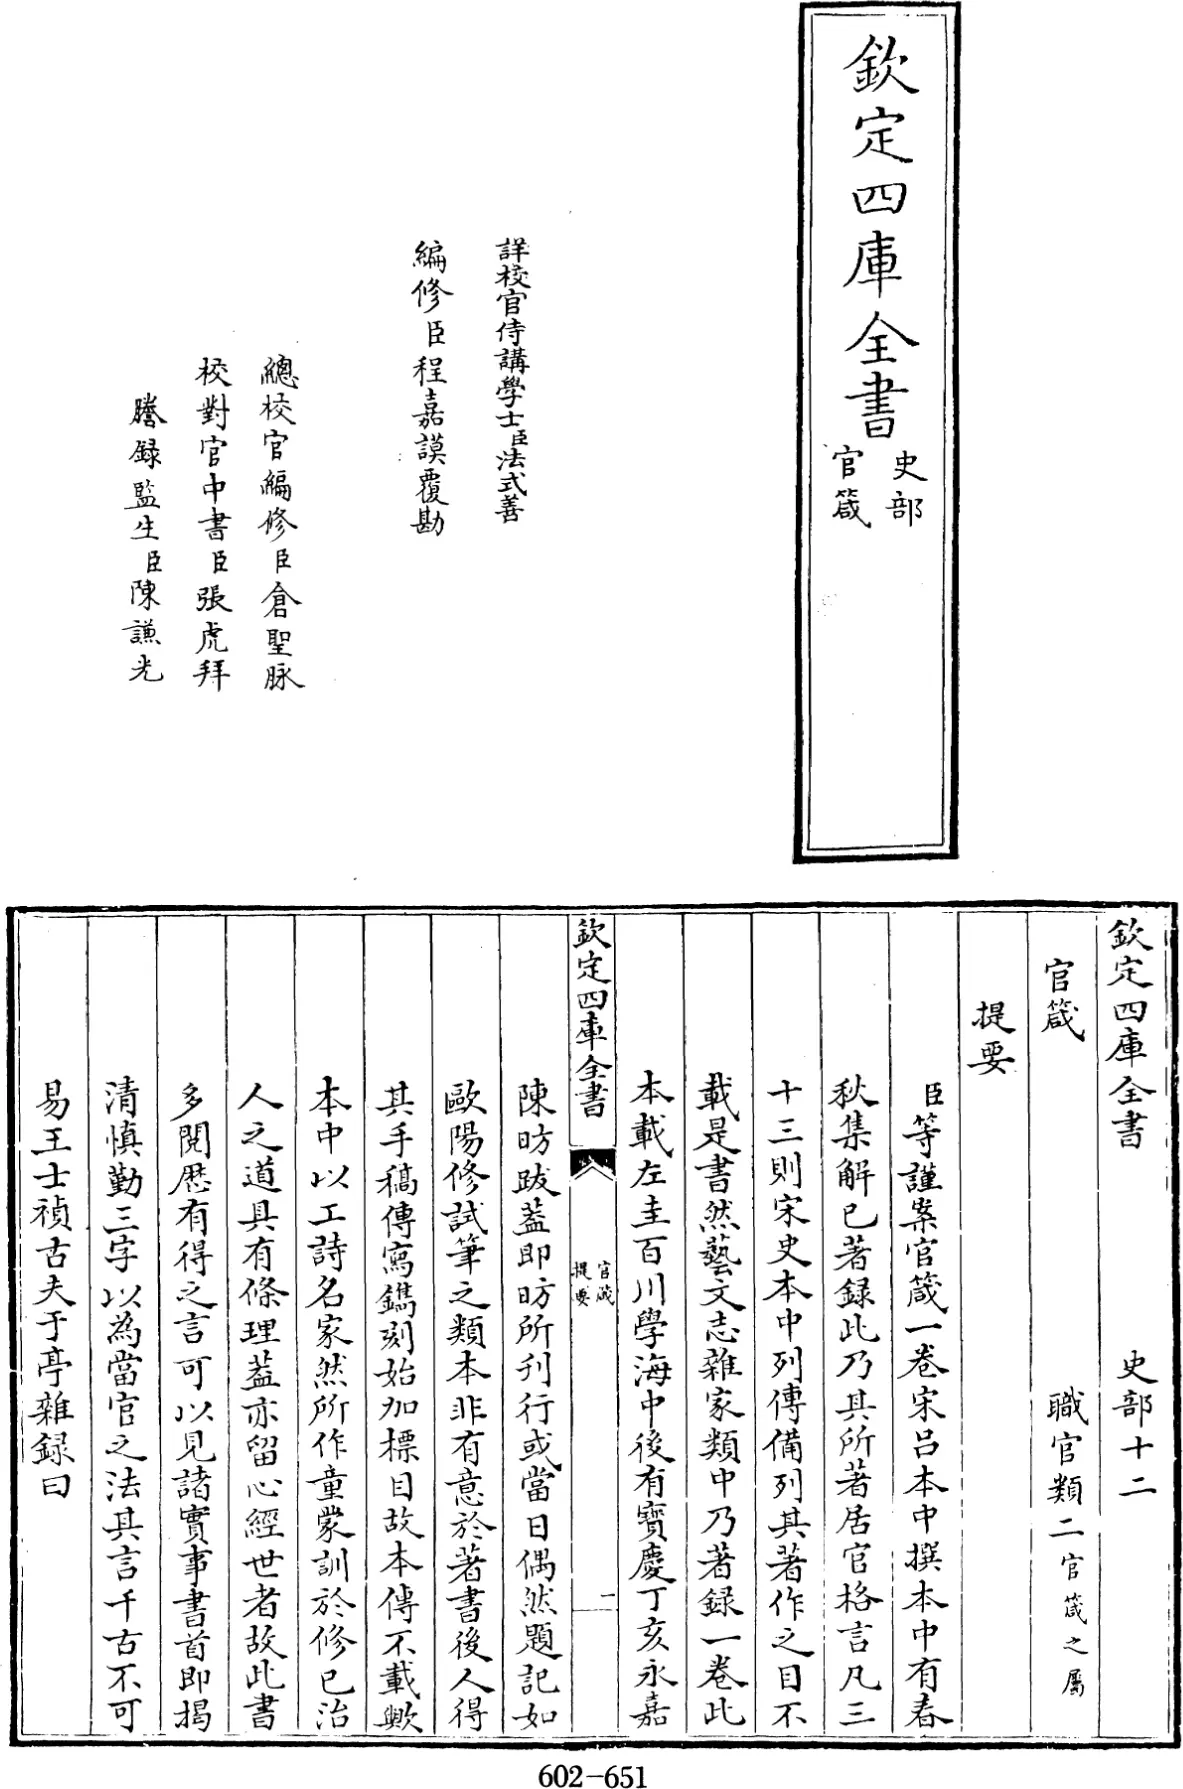 欽定四庫全書
史部
官箴
詳校官侍講學士臣法式善
編修臣程嘉謨覆勘
總校官編修臣倉聖脉
校對官中書臣張虎拜
謄錄監生臣陳謙光
欽定四庫全書 史部十二
官箴 職官類二官箴之屬
提要
臣等謹案官箴一卷宋呂本中撰本中有春
秋集解已著録此乃其所著居官格言凡三
十三則宋史本中列傳備列其著作之目不
載是書然藝文志雜家類中乃著録一卷此
本載左圭百川學海中後有寶慶丁亥永嘉
欽定四庫全書
官箴
提要
一
陳昉跋蓋即昉所刋行或當日偶然題記如
歐陽修試筆之類本非有意於著書後人得
其手稿傳寫鐫刻始加標目故本傳不載歟
本中以工詩名家然所作童蒙訓於修已治
人之道具有條理蓋亦留心經世者故此書
多閲歷有得之言可以見諸實事書首即揭
清慎勤三字以為當官之法其言千古不可
易王士禎古夫于亭雜録曰
602-651